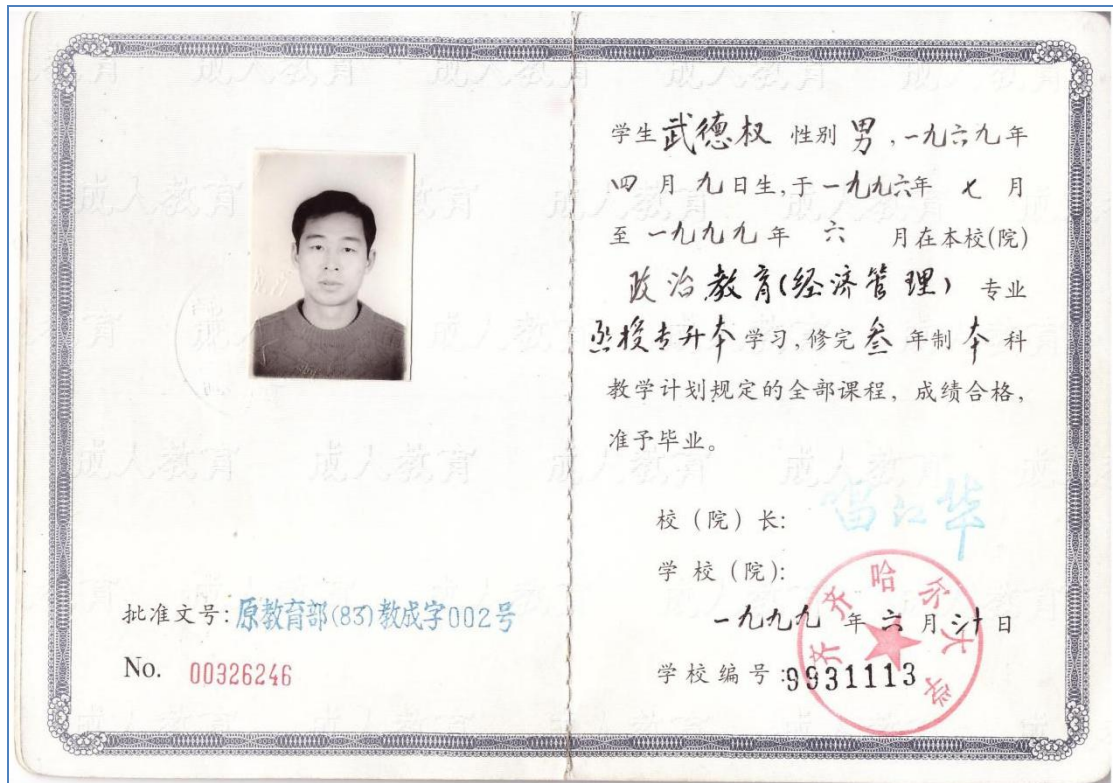 批准文号：原教育部(83)教成字002号
No. 00326246
学生武德权 性别男，一九六九年
四月九日生，于一九九六年七月
至一九九九年六月在本校(院)
政治教育(经济管理)专业
函授专升本学习，修完叁年制本科
教学计划规定的全部课程，成绩合格，
准予毕业。
校（院）长：
学校（院）：
齐齐哈尔大学
一九九九年六月 日
学校编号：9931113
成人教育